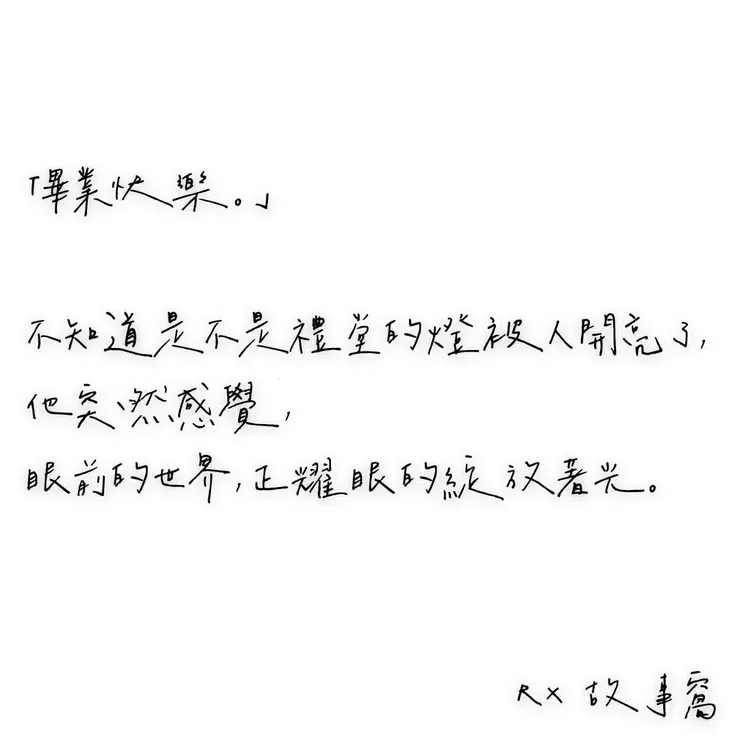 「畢業快樂。」
不知道是不是禮堂的燈被人開亮了,
他突然感覺,
眼前的世界,正耀眼的綻放著光。
RX 故事窩